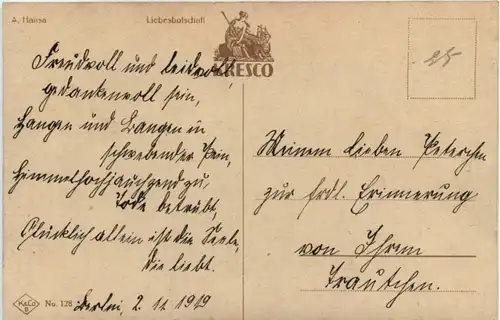 A. Hansa
Liebesbotschaft
Freudvoll und leidvoll,
gedankenvoll sein,
Hangen und Bangen in
schwebender Pein,
Himmelhochjauchzend zu
Tode betrübt,
Glücklich allein ist die Seele,
die liebt.
Berlin, 2. 11. 1919
No. 128
FRESCO
25
Meinem lieben Peterchen
zur frdl. Erinnerung
von Ihrem
Trautchen.